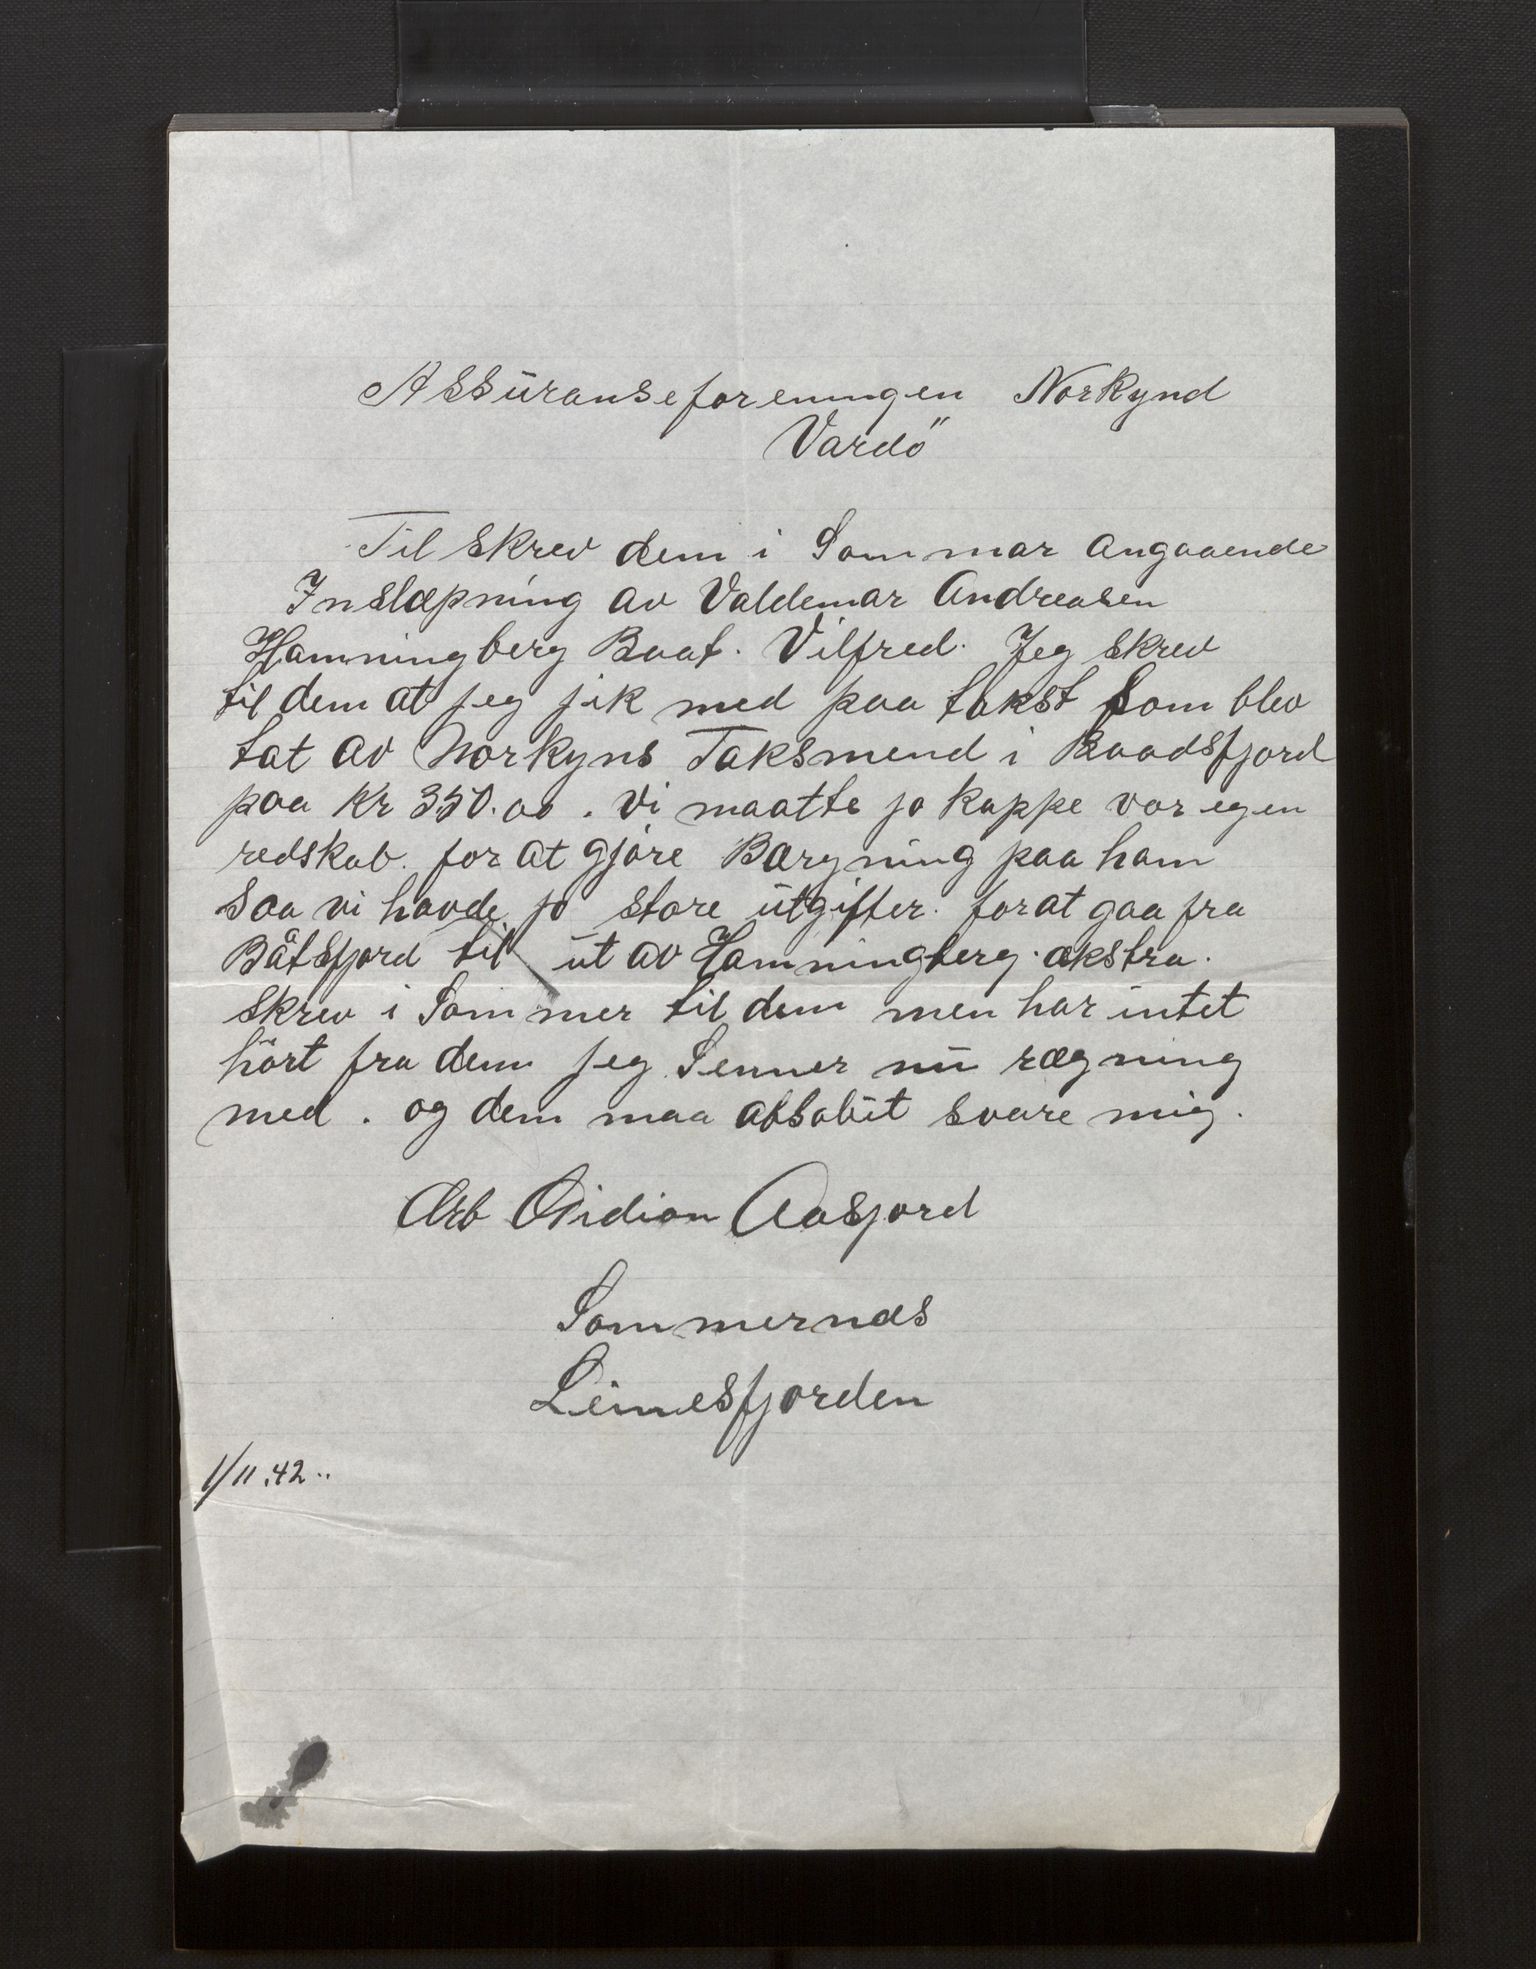 Assüranseforeningen Norkynd
Vardö
Til skrev dem i Sommar Angaaende
Inslæpning av Valdemar Andreasen
Hamningberg Baat. Vilfred. Jeg skrev
til dem at jeg jik med paa takst som blev
tat av Norkyns Taksmend i Baadsfjord
paa Kr 350.00. Vi maatte jo kappe vor egen
redskab. for at gjöre Bærgning paa ham
saa vi havde jo store ütgifter. for at gaa fra
Båtsfjord til üt av Hamningberg. ækstra.
skrev i Sommer til dem men har intet
hört fra dem jeg Senner nü rægning
med. og dem maa absolüt svare mig.
Ærb Ovidian Aasjord
Sommernæs
Leinesfjorden
1/11.42..